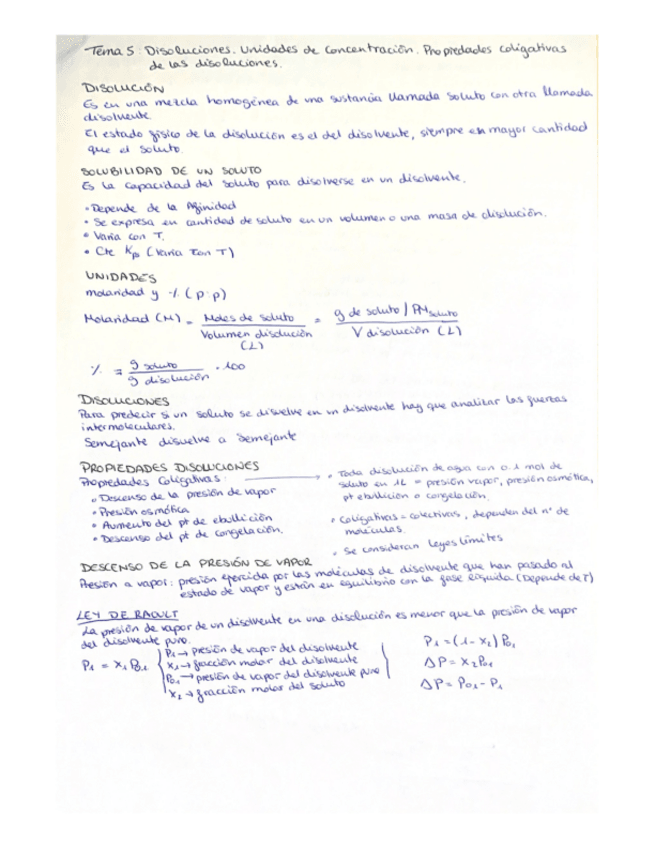 Tema 5: Disoluciones. Unidades de concentración. Propiedades coligativas
de las disoluciones.
DISOLUCIÓN
Es en una mezcla homogénea de una sustancia llamada soluto con otra llamada
disolvente.
El estado físico de la disolución es el del disolvente, siempre en mayor cantidad
que el soluto.
SOLUBILIDAD DE UN SOLUTO
Es la capacidad del soluto para disolverse en un disolvente.
• Depende de la Afinidad
• Se expresa en cantidad de soluto en un volumen o una masa de disolución.
• Varía con T.
• Cte Kps (Varía con T)
UNIDADES
molaridad y % (p:p)
Molaridad (M) = Moles de soluto / Volumen disolución (L) = g de soluto / PM soluto / V disolución (L)
% = g soluto / g disolución · 100
DISOLUCIONES
Para predecir si un soluto se disuelve en un disolvente hay que analizar las fuerzas
intermoleculares.
Semejante disuelve a semejante
PROPIEDADES DISOLUCIONES
Propiedades Coligativas:
• Descenso de la presión de vapor
• Presión osmótica
• Aumento del pt de ebullición
• Descenso del pt de congelación.
• Toda disolución de agua con 0.1 mol de
soluto en 1L = presión vapor, presión osmótica,
pt ebullición o congelación.
• Coligativas = colectivas, dependen del nº de
moléculas.
• Se consideran leyes límites
DESCENSO DE LA PRESIÓN DE VAPOR
Presión a vapor: presión ejercida por las moléculas de disolvente que han pasado al
estado de vapor y están en equilibrio con la fase líquida (Depende de T)
LEY DE RAOULT
La presión de vapor de un disolvente en una disolución es menor que la presión de vapor
del disolvente puro.
P1 = X1 P01
P1 → presión de vapor del disolvente
X1 → fracción molar del disolvente
P01 → presión de vapor del disolvente puro
X2 → fracción molar del soluto
P1 = (1 - X2) P01
ΔP = X2 P01
ΔP = P01 - P1